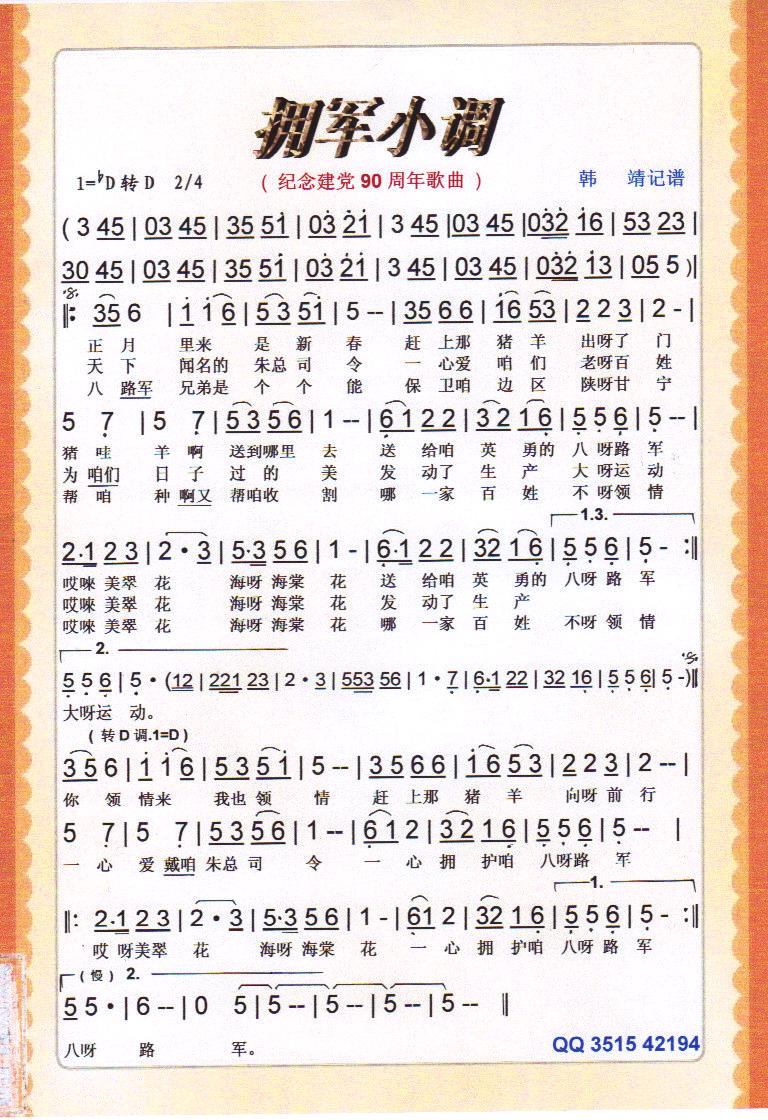 拥军小调
1=♭D 转 D 2/4 （ 纪念建党 90 周年歌曲 ） 韩 靖记谱
( 3 45 | 03 45 | 35 51 | 03 21 | 3 45 |03 45 |032 16 | 53 23 |
30 45 | 03 45 | 35 51 | 03 21 | 3 45 | 03 45 | 032 13 | 05 5 )|
|: 35 6 | 1 1 6 | 5 3 51 | 5 -- | 35 6 6 | 16 53 | 2 2 3 | 2 - |
正 月 里来 是 新 春 赶 上那 猪 羊 出呀了 门
天 下 闻名的 朱总 司 令 一 心爱 咱 们 老呀百 姓
八 路军 兄弟是 个 个 能 保 卫咱 边 区 陕呀甘 宁
5 7 | 5 7 | 5 3 5 6 | 1 -- | 6 1 2 2 | 3 2 1 6 | 5 5 6 | 5 -- |
猪 哇 羊 啊 送到哪里 去 送 给咱 英 勇的 八 呀路 军
为 咱们 日 子 过 的 美 发 动了 生 产 大 呀运 动
帮 咱 种 啊又 帮咱收 割 哪 一家 百 姓 不 呀领 情
1.3.
2·1 2 3 | 2 · 3 | 5·3 5 6 | 1 - | 6·1 2 2 | 32 1 6 | 5 5 6 | 5 - :||
哎唻 美翠 花 海呀 海棠 花 送 给咱 英 勇的 八呀 路 军
哎唻 美翠 花 海呀 海棠 花 发 动了 生 产
哎唻 美翠 花 海呀 海棠 花 哪 一家 百 姓 不呀 领 情
2.
5 5 6 | 5 · (12 | 221 23 | 2 · 3 | 553 56 | 1 · 7 | 6·1 22 | 32 16 | 5 5 6| 5 -)||
大呀运 动。
( 转 D 调.1=D )
3 5 6 | 1 1 6 | 5 3 5 1 | 5 -- | 3 5 6 6 | 1 6 5 3 | 2 2 3 | 2 -- |
你 领 情来 我也 领 情 赶 上那 猪 羊 向呀 前 行
5 7 | 5 7 | 5 3 5 6 | 1 -- | 6 1 2 | 3 2 1 6 | 5 5 6 | 5 -- |
一 心 爱 戴咱 朱总 司 令 一 心 拥 护咱 八呀路 军
1.
||: 2·1 2 3 | 2 · 3 | 5·3 5 6 | 1 - | 61 2 | 32 1 6 | 5 5 6 | 5 - :||
哎 呀美翠 花 海呀 海棠 花 一 心 拥 护咱 八呀 路 军
( 慢 ) 2.
5 5 · | 6 -- | 0 5 | 5 -- | 5 -- | 5 -- | 5 -- ||
八呀 路 军。
QQ 3515 42194